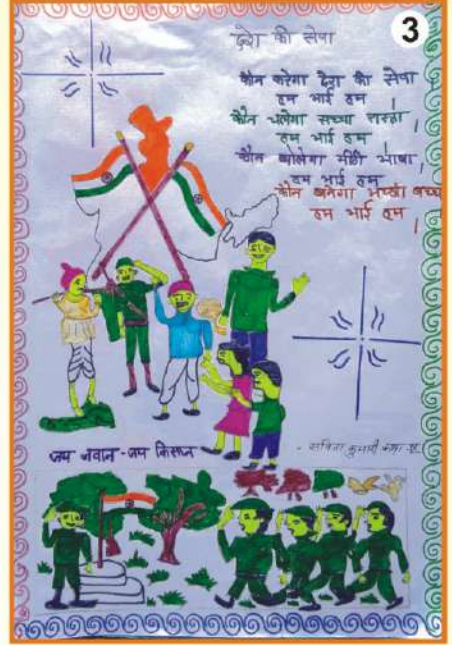 3
देश की सेवा
कौन करेगा देश की सेवा
हम भाई हम ।
कौन चलेगा सच्चा रास्ता
हम भाई हम ।
कौन बोलेगा मीठी भाषा,
हम भाई हम ।
कौन बनेगा अच्छा बच्चा
हम भाई हम ।
जय जवान-जय किसान
- सविता कुमारी कक्षा-